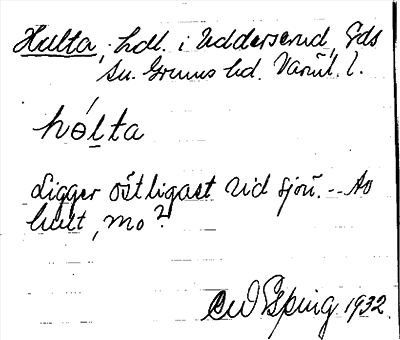 Hulta, hdl. i Uddersrud, Eds
sn. Grums hd. Värml. l.
hólta
Ligger östligast vid sjön. -- Av
hult, mo?
1932.